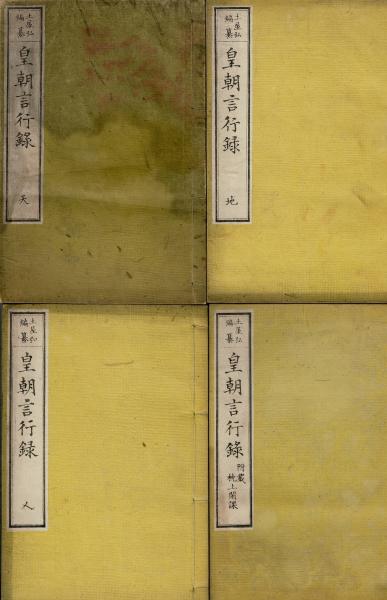 土屋弘
編纂
皇朝言行錄
天
土屋弘
編纂
皇朝言行錄
地
土屋弘
編纂
皇朝言行錄
人
土屋弘
編纂
皇朝言行錄
附藏
枕上閑課